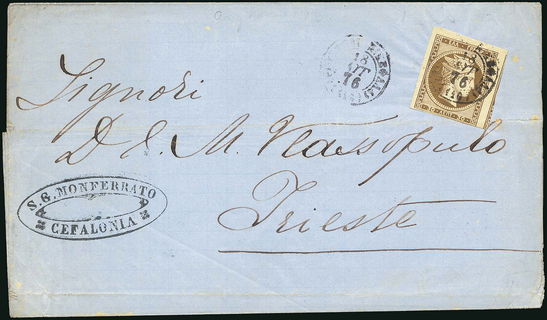 18
76
Signori
D. & M. Vlassopulo
Trieste
S. G. MONFERRATO
CEFALONIA